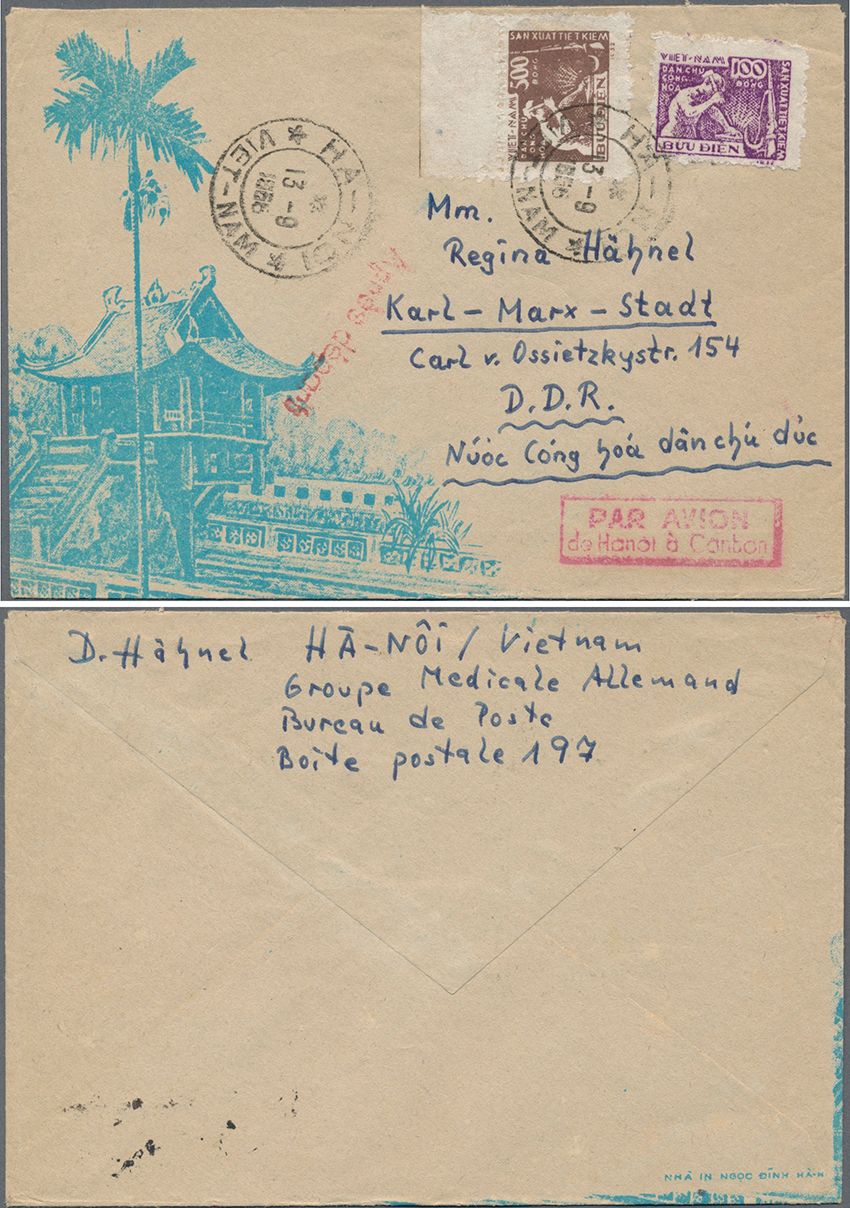 SẢN XUẤT TIẾT KIỆM
500
ĐỒNG
VIỆT-NAM
DÂN CHỦ
BƯU ĐIỆN
VIỆT-NAM
DÂN CHỦ
CỘNG
HÒA
100
ĐỒNG
SẢN XUẤT TIẾT KIỆM
BƯU ĐIỆN
HÀ-NỘI
VIỆT-NAM
13-9
1956
HÀ-NỘI
VIỆT-NAM
13-9
1956
Après départ
Mm.
Regina Hähnel
Karl-Marx-Stadt
Carl v. Ossietzkystr. 154
D.D.R.
Nước Cộng hoà dân chủ đức
PAR AVION
de Hanoi à Canton
D. Hähnel HÀ-NÔI / Vietnam
Groupe Medicale Allemand
Bureau de Poste
Boîte postale 197
NHÀ IN NGỌC ĐĨNH HÀ-N